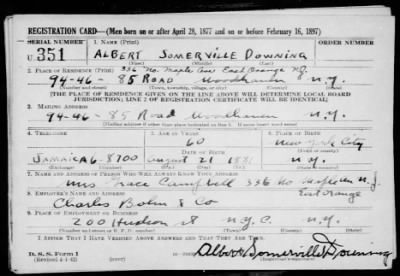 REGISTRATION CARD—(Men born on or after April 28, 1877 and on or before February 16, 1897)
SERIAL NUMBER 1. NAME (Print)
U 351 ALBERT SOMERVILLE DOWNING
2. PLACE OF RESIDENCE (Print) 336 No. Maple Ave East Orange N.J.
94-46-85 ROAD Woodhaven N.Y.
(Number and street) (Town, township, village, or city) (County) (State)
[THE PLACE OF RESIDENCE GIVEN ON THE LINE ABOVE WILL DETERMINE LOCAL BOARD
JURISDICTION; LINE 2 OF REGISTRATION CERTIFICATE WILL BE IDENTICAL]
3. MAILING ADDRESS
94-46-85 Road Woodhaven N.Y.
4. TELEPHONE 5. AGE IN YEARS 6. PLACE OF BIRTH
60 New York City
DATE OF BIRTH
JAMAICA 6-8700 August 21 1881 N.Y.
7. NAME AND ADDRESS OF PERSON WHO WILL ALWAYS KNOW YOUR ADDRESS
Mrs Grace Campbell 336 No Maple Ave N.J.
East Orange
8. EMPLOYER'S NAME AND ADDRESS
Charles & Co
9. PLACE OF EMPLOYMENT OR BUSINESS
200 Hudson St N.Y.C. N.Y.
I AFFIRM THAT I HAVE VERIFIED ABOVE ANSWERS AND THAT THEY ARE TRUE.
D. S. S. Form 1
(Revised 4-1-42)
Albert Somerville Downing